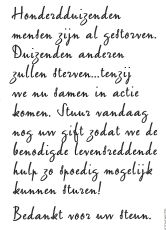 Honderdduizenden
mensen zijn al gestorven.
Duizenden anderen
zullen sterven...tenzij
we nu samen in actie
komen. Stuur vandaag
nog uw gift zodat we de
benodigde levensreddende
hulp zo spoedig mogelijk
kunnen sturen!
Bedankt voor uw steun.